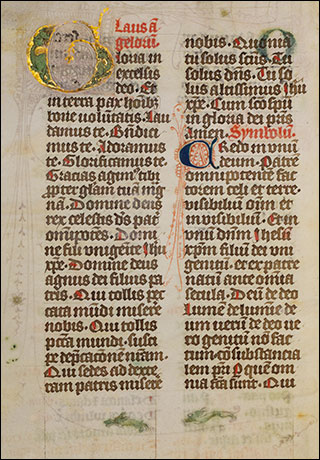 Laus an
geloru.
loria in
excelsis
deo. Et
in terra pax hoibz
bone volutatis. Lau
damus te. Bndici
mus te. Adoramus
te. Glorificamus te.
Gracias agim' tibi
ppter glam tuā mg
nā. Domine deus
rex celestis ds pat
omipotēs. Domine
fili unigenite Ihu
xpe. Domine deus
agnus dei filius pa
tris. Qui tollis pec
cata mūdi misere
nobis. Qui tollis
pcta mundi. susci
pe depcationē nram.
Qui sedes ad dexte
ram patris misere
nobis. Quonia
tu solus scūs. Tu
solus dns. Tu so
lus altissimus Ihu
xpe. Cum sco spu
in gloria dei pris
Amen. Symbolū.
Credo in vnū
deum. Patrē
omnipotente fac
torem celi et terre.
visibiliū oim et
invisibiliū. Et in
vnū dnm Ihesū
xpm filiū dei vni
genitū. et ex patre
natū ante omia
secula. Deū de deo
Lumē de lumie de
um verū de deo ve
ro genitū nō fac
tum cōsubstancia
lem pri P quē om
nia fcta sunt. Qui